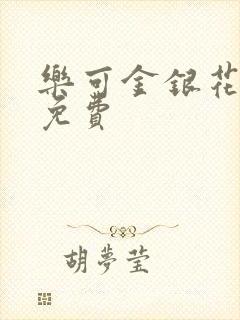 樂可金銀花
免費
胡夢瑩